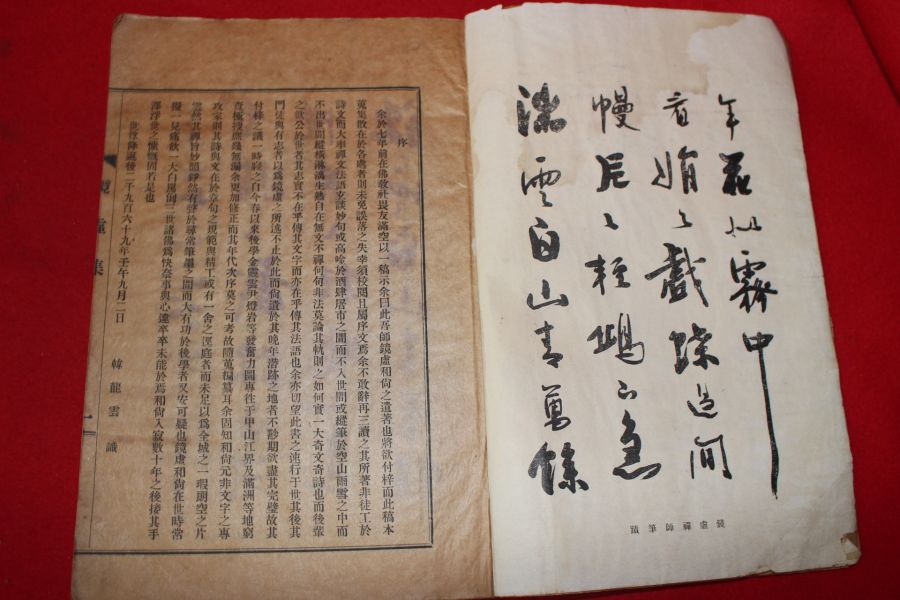 年花似霧中
看娟〻戲蝶過間
幔片〻輕鷗下急
湍雲白山青萬餘
蹟筆師禪虛鏡
序
余於七年前在佛敎社畏友滿空以一稿示余曰此吾師鏡虛和尙之遺著也將欲付梓而此稿本
蒐集散在於各處者則未免誤落之失幸須校閱且屬序文焉余不敢辭再三讀之其所著非徒工於
詩文而大率禪文法語玄談妙句或高唫於酒肆屠市之間而不入世間或縱筆於空山雨雪之中而
不出世間縱橫淋漓生熟自在無文不禪何句非法莫論其軌則之如何實一大奇文奇詩也而後輩
之欲公於世者其志實不在乎傳其文字而亦在乎傳其法語也余亦切望此書之速行于世其後其
門徒與有志者以爲鏡虛之所述不止於此而尙遺於其晩年潛跡之地者不尠期欲盡其完璧故其
付梓之議一時寢之自今春以來後學金靈雲尹燈岩等發奮力圖專往于甲山江界及滿洲等地窮
査極搜庶幾無漏余更加修正而其年代次序莫之可考故隨蒐編纂耳余固知和尙元非文字之專
攻家則其詩與文在於章句之規範與精工或有一舍之逕庭者而未足以爲全城之一瑕頭空之片
雲然其禪旨妙韻縡然有聲於尋常筆墨之間而大有功於後學者又安可疑也鏡虛和尙在世時常
擬一見痛飮一大白罵倒三世諸佛爲快奈事與心違卒未能於焉和尙入寂數十年之後接其手
澤浮世之慷慨固若是也
世尊降誕後二千九百六十九年壬午九月二日 韓龍雲 識
鏡虛集
一